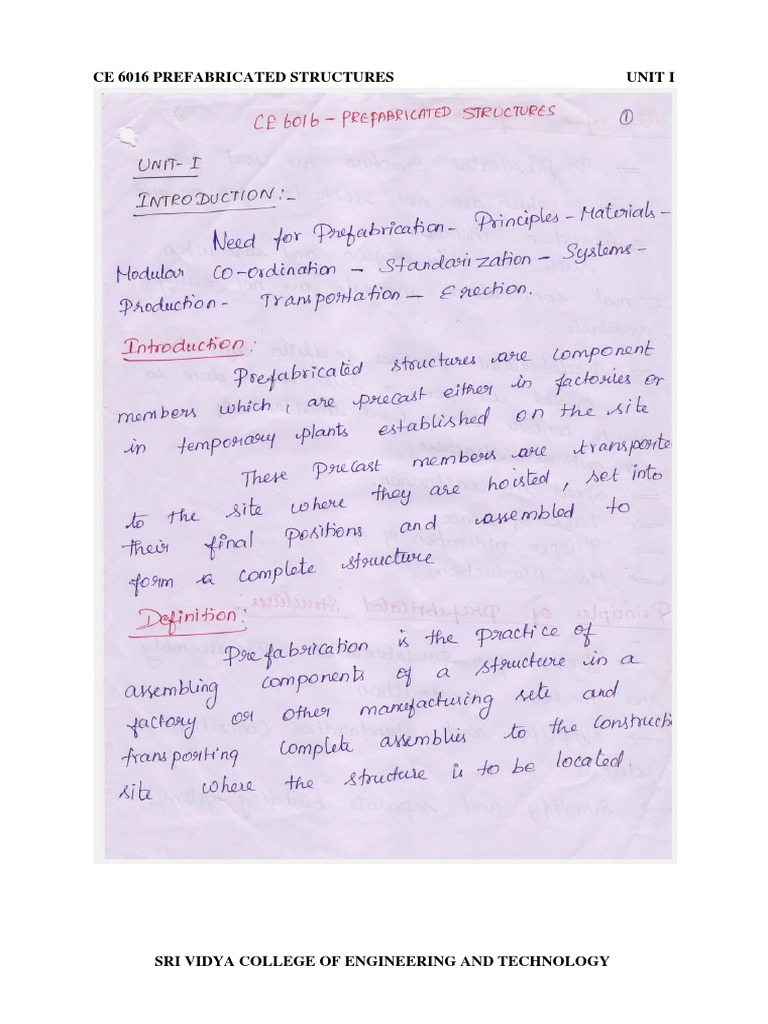 CE 6016 PREFABRICATED STRUCTURES UNIT I
CE 6016 - PREFABRICATED STRUCTURES 1
UNIT- I
INTRODUCTION:-
Need for Prefabrication- Principles - Materials -
Modular CO-ordination - Standarization - Systems -
Production - Transportation - Erection.
Introduction:
Prefabricated structures are component
members which, are precast either in factories or
in temporary plants established on the site
These precast members are transporte
to the site where they are hoisted, set into
their final positions and assembled to
form a complete structure
Definition:
Prefabrication is the practice of
assembling components of a structure in a
factory or other manufacturing sete and
transpoiting complete assemblies to the constructi
site where the structure is to be located.
SRI VIDYA COLLEGE OF ENGINEERING AND TECHNOLOGY